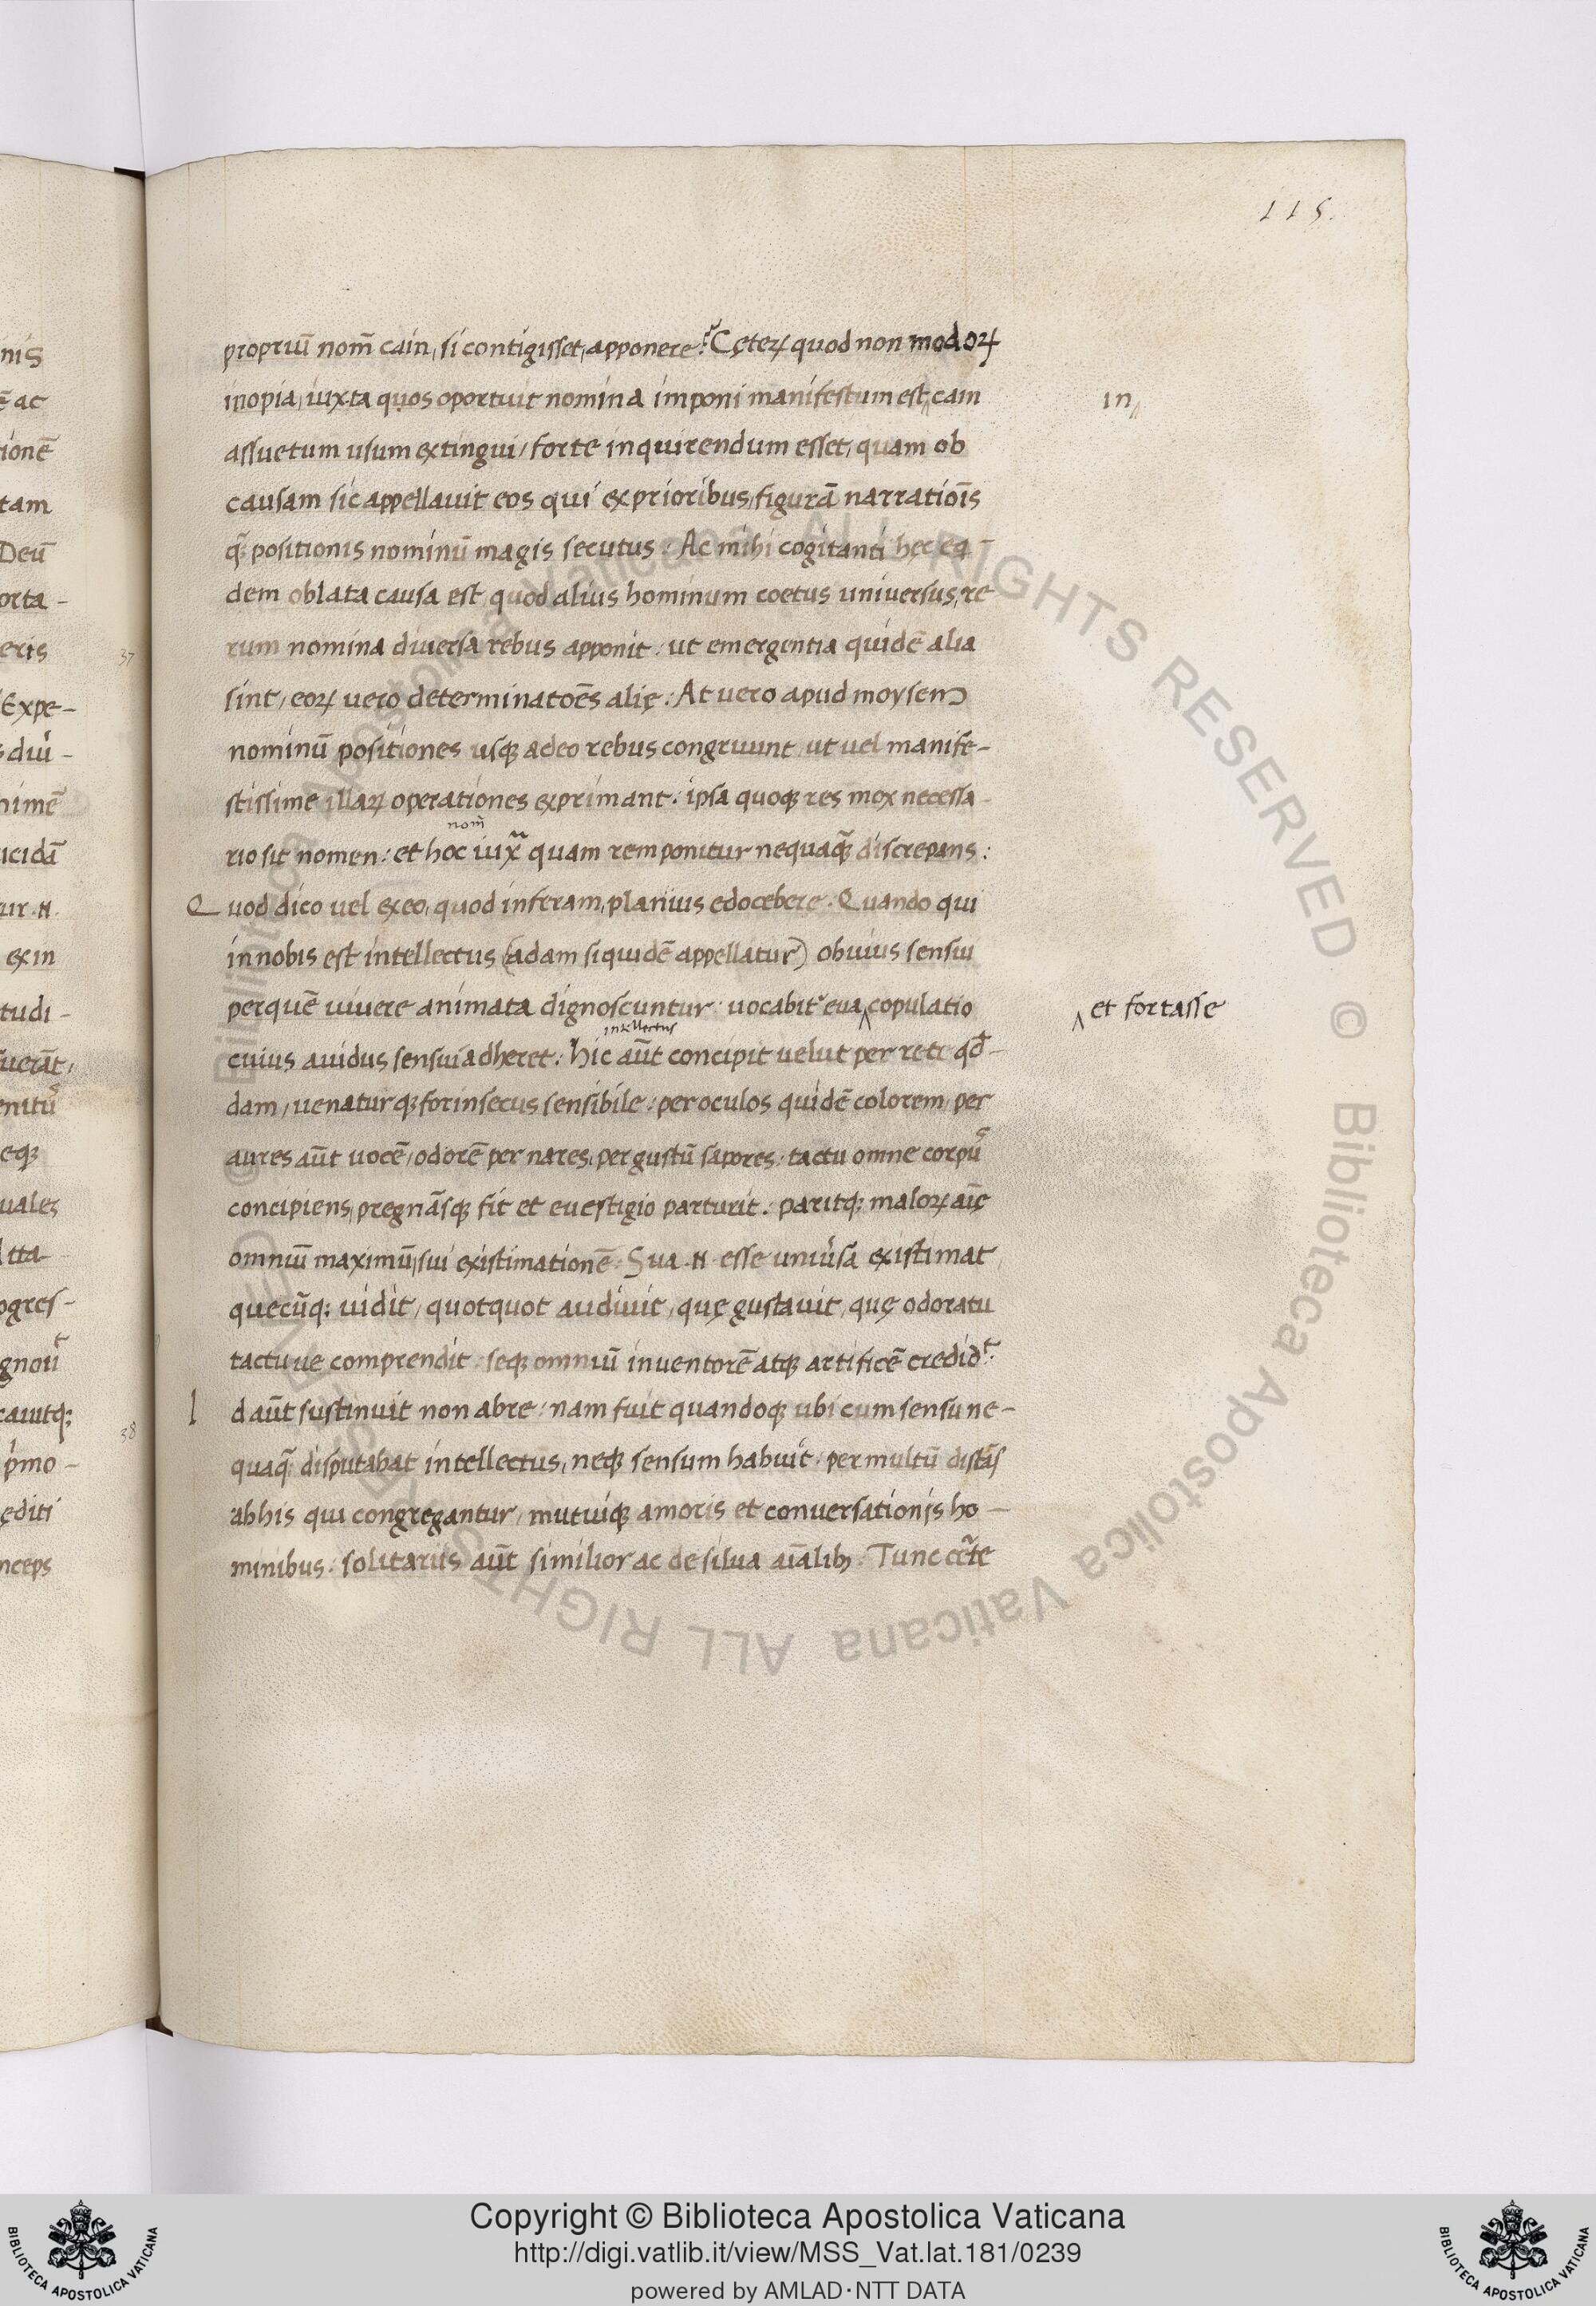 115.
propriū nom̄ cain, si contigisset, apponere? Cęteꝝ quod non modoꝝ
inopia, iuxta quos oportuit nomina imponi manifestum est, cain
in
assuetum usum extingui, forte inquirendum esset, quam ob
causam sic appellavit eos qui ex prioribus, figurā narratiōis
q̄ positionis nominū magis secutus: Ac mihi cogitanti hęc ea-
dem oblata causa est quod alius hominum coetus universus, re
rum nomina diversa rebus apponit: ut emergentia quidē alia
sint, eoꝝ vero determinatōēs alię: At vero apud moysem
nominū positiones usqꝫ adeo rebus congruunt, ut vel manife-
stissime illaꝝ operationes exprimant: ipsa quoqꝫ res mox necessa-
nom̄
rio sit nomen: et hoc iuxᵃ quam rem ponitur nequaqꝫ̄ discrepans:
Quod dico vel ex eo, quod inferam, planius edocebere. Quando qui
in nobis est intellectus (adam siquidē appellatur) obvius sensui
per quē vivere animata dignoscuntur: vocabit᷑ eva ‸ copulatio
‸ et fortasse
intellectus
cuius avidus sensui adheret: hic aūt concipit velut per rete qd̄-
dam, venaturqꝫ forinsecus sensibile: per oculos quidē colorem, per
aures aūt vocē, odorē per nares, per gustū sapores, tactu omne corpꝰ
concipiens, pregnāsqꝫ fit et evestigio parturit: paritqꝫ maloꝝ aīę
omniū maximū, sui existimationē: Sua .N. esse univ̓sa existimat
quecūqꝫ vidit, quotquot audivit, quę gustavit, quę odoratu
tactu ve comprendit: seqꝫ omniū inventorē atqꝫ artificē credidᵗ:
Id aūt sustinuit non abre: nam fuit quandoqꝫ ubi cum sensu ne-
quaqꝫ̄ disputabat intellectus, neqꝫ sensum habuit: per multū distās
ab his qui congregantur, mutuiqꝫ amoris et conversationis ho-
minibus: solitariis aūt similior ac de silva aīalibꝫ: Tunc cert̄e
nis
ē ac
tionē
tam
Deū
orta-
eris
Expe-
diu-
nimē
icidā
ur .N.
ex in
tudi-
verāt,
enitꝰ
eqꝫ
uales
tta
ogres-
gnovᵗ
cavitqꝫ
pͥmo-
ęditi
nceps
37
38
Copyright © Biblioteca Apostolica Vaticana
http://digi.vatlib.it/view/MSS_Vat.lat.181/0239
powered by AMLAD·NTT DATA
BIBLIOTECA APOSTOLICA VATICANA
BIBLIOTECA APOSTOLICA VATICANA
© Biblioteca Apostolica Vaticana ALL RIGHTS RESERVED © Biblioteca Apostolica Vaticana ALL RIGHTS RESERVED